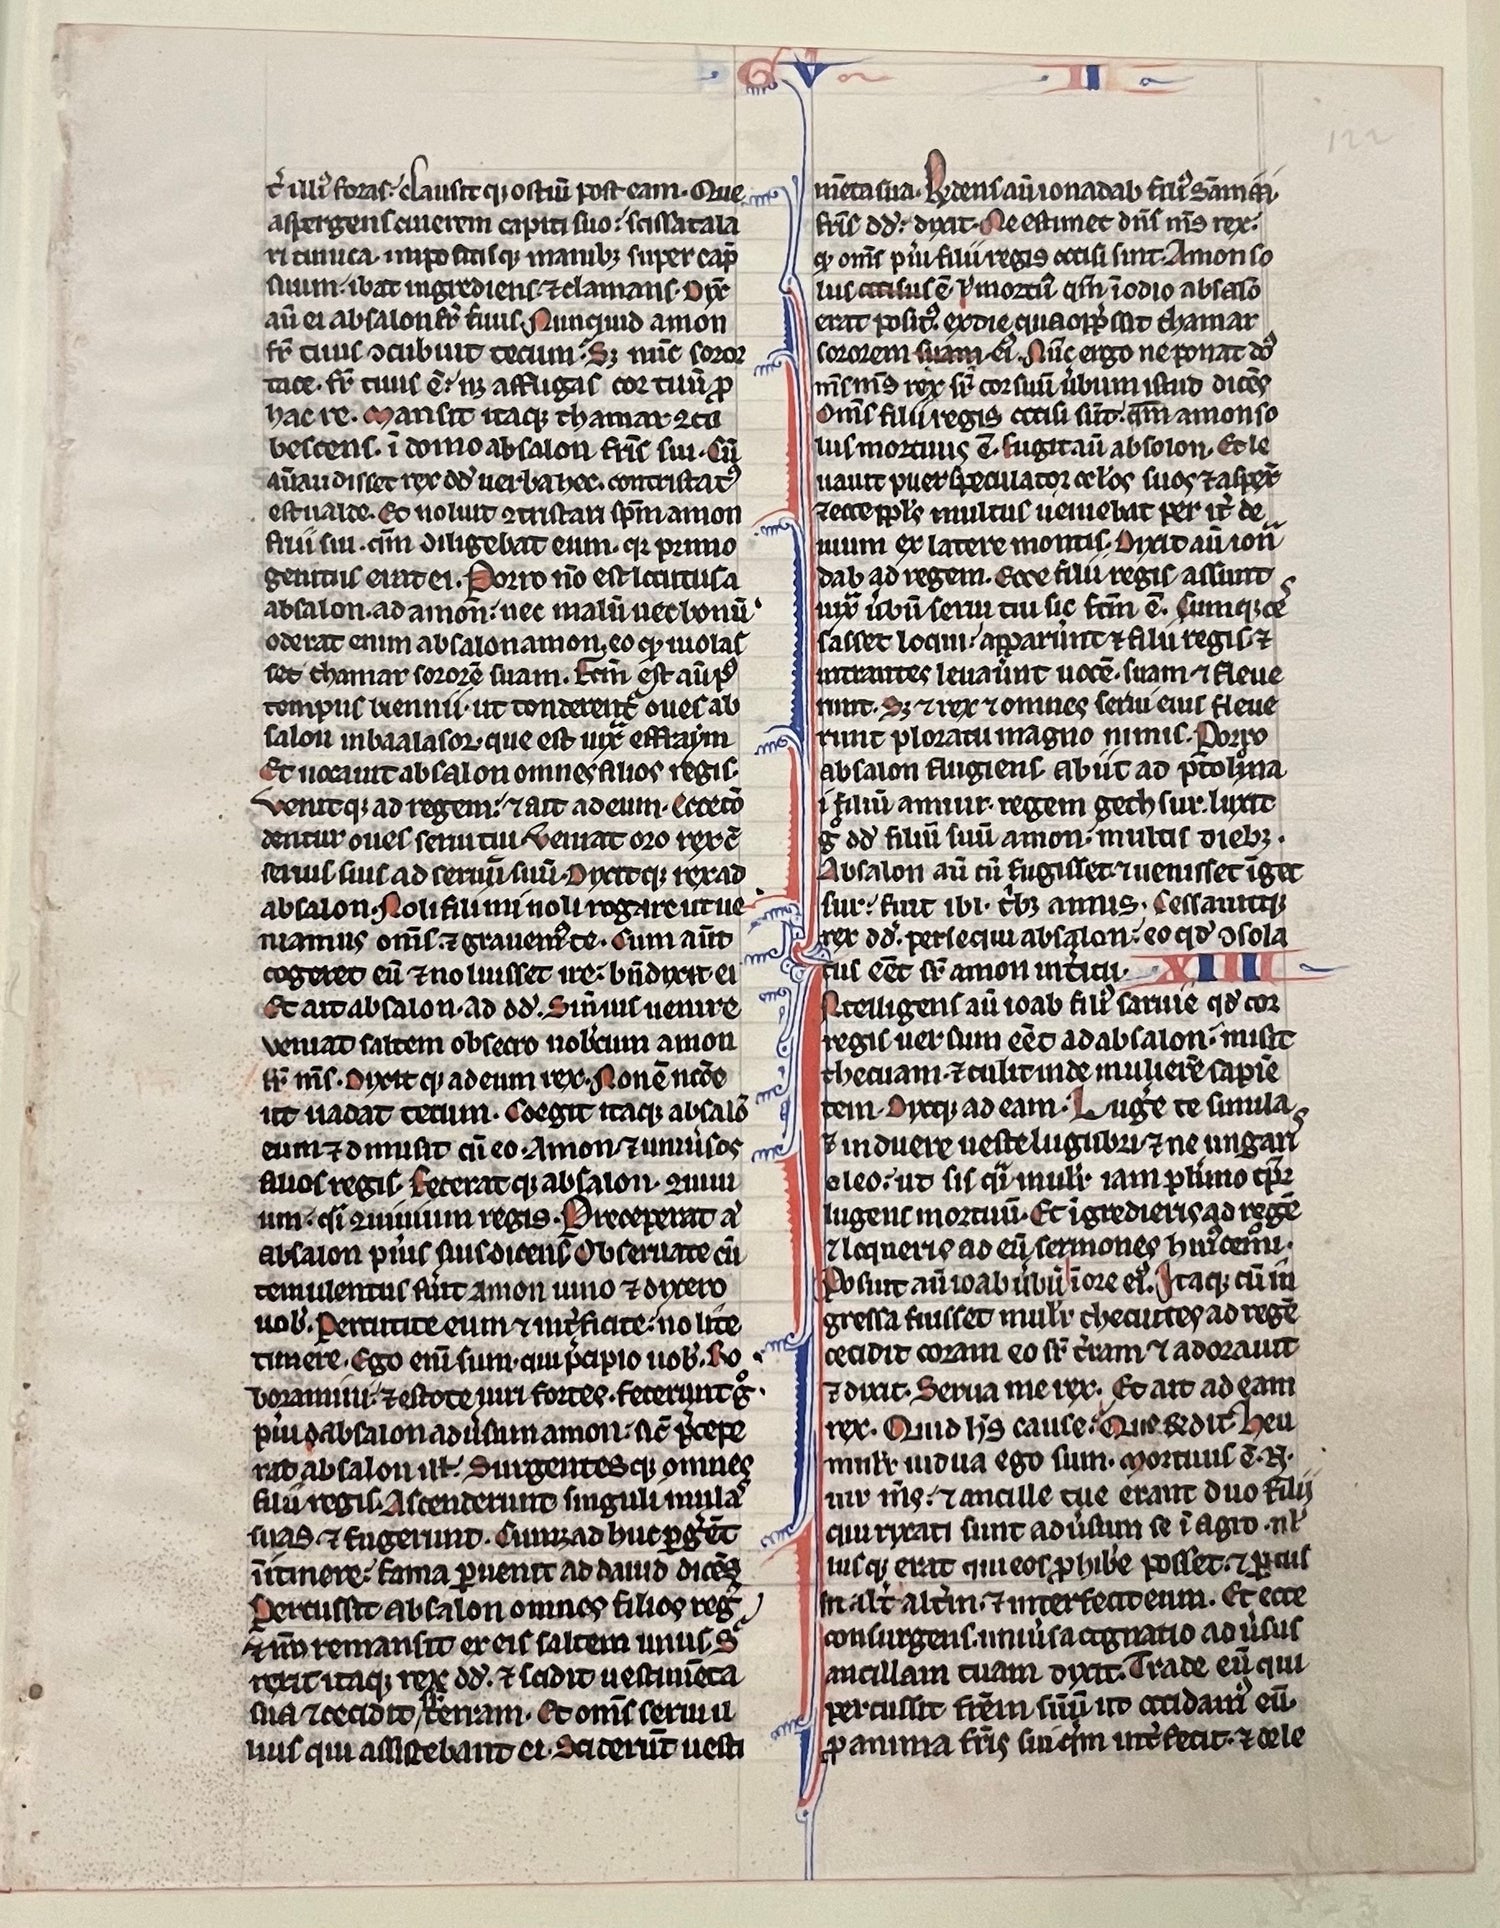 G V
II
122
t̄ illū foras. clausitq; ostiū post eam. Que
aspergens cinerem capiti suo: scissa tala
ri tunica. impositisq; manib; super cap̄
suum. ibat ingrediens. ⁊ clamans. Dix̄
aū ei absalon fr̄ suus. Nunquid amon
fr̄ tuus ↄcubuit tecum. Sꝫ nūc soror
tace. fr̄ tuus ē. nꝫ affligas cor tuū ꝓ
hac re. Mansit itaq; thamar ↄta
bescens. ī domo absalon fr̄is sui. Cū
aū audisset rex dd̄ uerba hec. contristatꝰ
est ualde. Et noluit ↄtristari sp̄m amon
filii sui. qm̄ diligebat eum. qꝛ primo
genitus erat ei. Porro nō est locutus a
absalon. ad amon: nec malū nec bonū.
oderat enim absalon amon. eo qꝫ uiolas
set thamar sororē suam. Fctm̄ est aū pꝰ
tempus biennii. ut tonderent̄ oues ab
salon in baalasor. que est iux̄ effraym
Et uocauit absalon omnes filios regis.
Venitq; ad regem: ⁊ ait ad eum. Ecce tō
dentur oues serui tui. Veniat oro rex c̄
seruis suis ad seruū suū. Dixitq; rex ad
absalon. Noli fili mi noli rogare ut ue
niamus om̄s. ⁊ grauemꝰ te. Cum aūt
cogeret eū ⁊ noluisset ire: bn̄dixit ei
Et ait absalon. ad dd̄. Si nō uis uenire
veniat saltem obsecro nobiscum amon
fr̄ m̄s. Dixitq; ad eum rex. Non ē nc̄ce
ut uadat tecum. Coegit itaq; absalō
eum ⁊ dimisit cū eo. Amon ⁊ uniūsos
filios regis. Feceratq; absalon. ↄuiui
um. qͥsi ↄuiuium regis. Preceperat aͥ
absalon pūis suis dicens. Obseruate cū
temulentus fūit amon uino ⁊ dixero
uob̄. Percutite eum ⁊ int̄ficite. nolite
timere. Ego enī sum. qui p̄cipio uob̄. Ro
boramini: ⁊ estote uiri fortes. Fecerunt gͦ.
pūi absalon adūsum amon: sic̄ p̄cepe
rat absalon ill̄. Surgentesq; omnes
filii regis. Ascenderunt singuli mulaˢ
suas. ⁊ fugerunt. Cumꝫ adhuc ꝑgēt
ī itinere: fama ꝑuenit ad dauid dicēs
Percussit absalon omnes filios reḡ
⁊ nō remansit ex eis saltem unus. S
rexit itaq; rex dd̄. ⁊ scidit uestimēta
sua ⁊ cecidit sr̄ terram. Et om̄s serui il
lius qui assistebant ei. Sciderūt uesti
mēta sua. Rͥdens aū ionadab filiꝰ sāma
fr̄is dd̄: dixit. Ne estimet dn̄s m̄s rex:
qꝫ om̄s pūi filii regis occisi sint. Amon so
lus occisus ē ꝟ mortuꝰ qm̄ ī odio absalō
erat positꝰ. ex die qua opp̄ssit thamar
sororem suam eiꝰ. Nūc ergo ne ponat dn̄s
m̄s rex sr̄ cor suū ūbum istud dicēs
Om̄s filii regis occisi sūt. qm̄ amon so
lus mortuus ē. Fugit aū absalon. Et le
uauit puer speculator oc̄los suos ⁊ aspex̄
⁊ ecce pp̄ls multus ueniebat per it̄ de
uium ex latere montis. Dixit aū ion
dab ad regem. Ecce filii regis assunt
iux̄ ūbū serui tui sic fctm̄ ē. Cumq; ces
sasset loqui: apparūnt ⁊ filii regis. ⁊
intrantes leuaūnt uocē suam ⁊ fleue
runt. Sꝫ ⁊ rex ⁊ omnes serui eius fleue
runt ploratu magno nimis. Porro
absalon fugiens. Abiit ad ptolma
i filiū amiur. regem gechsur. luxit
gͦ dd̄ filiū suū amon. multis dieb;.
Absalon aū cū fugisset ⁊ uenisset ī ges
sur. fuit ibi. trib; annis. Cessauitq;
rex dd̄. persequi absalon. eo qd̄ ↄsola
tus eēt sr̄ amon int̄itu. XIIII
Ntelligens aū ioab filiꝰ saruie qd̄ cor
regis uersum eēt ad absalon. misit
thecuam. ⁊ tulit inde mulierē sapiē
tem. Dixq; ad eam. Luge te simula
⁊ induere ueste lugubri. ⁊ ne ungarͥ
oleo: ut sis qͣ mulr̄ iam plimo tp̄r
lugens mortuū. Et ī gredieris ad regē
⁊ loqueris ad eū sermones hui̾cem̄i.
Posuit aū ioab ūbū ī ore eiꝰ. Itaq; cū in
gressa fuisset mulr̄ thecuites ad regē
cecidit coram eo sr̄ t̄ram ⁊ adorauit
⁊ dixit. Serua me rex. Et ait ad eam
rex. Quid hꝫ cause. Que r̄ndit Heu
mulr̄ uidua ego sum. Mortuus ē. N̄.
uir m̄s. ⁊ ancille tue erant duo filii
qui rixati sunt adūsum se ī agro. nl̄
lusq; erat qui eos ꝓhibe posset. ⁊ ꝑcus
sit alt̄ altm̄. ⁊ interfecit eum. Et ecce
consurgens. uniūsa cognatio adūsus
ancillam tuam dixit. Trade eū qui
percussit frēm suū ut occidamꝰ eū
ꝓ anima fr̄is sui qm̄ int̄fecit. ⁊ dele